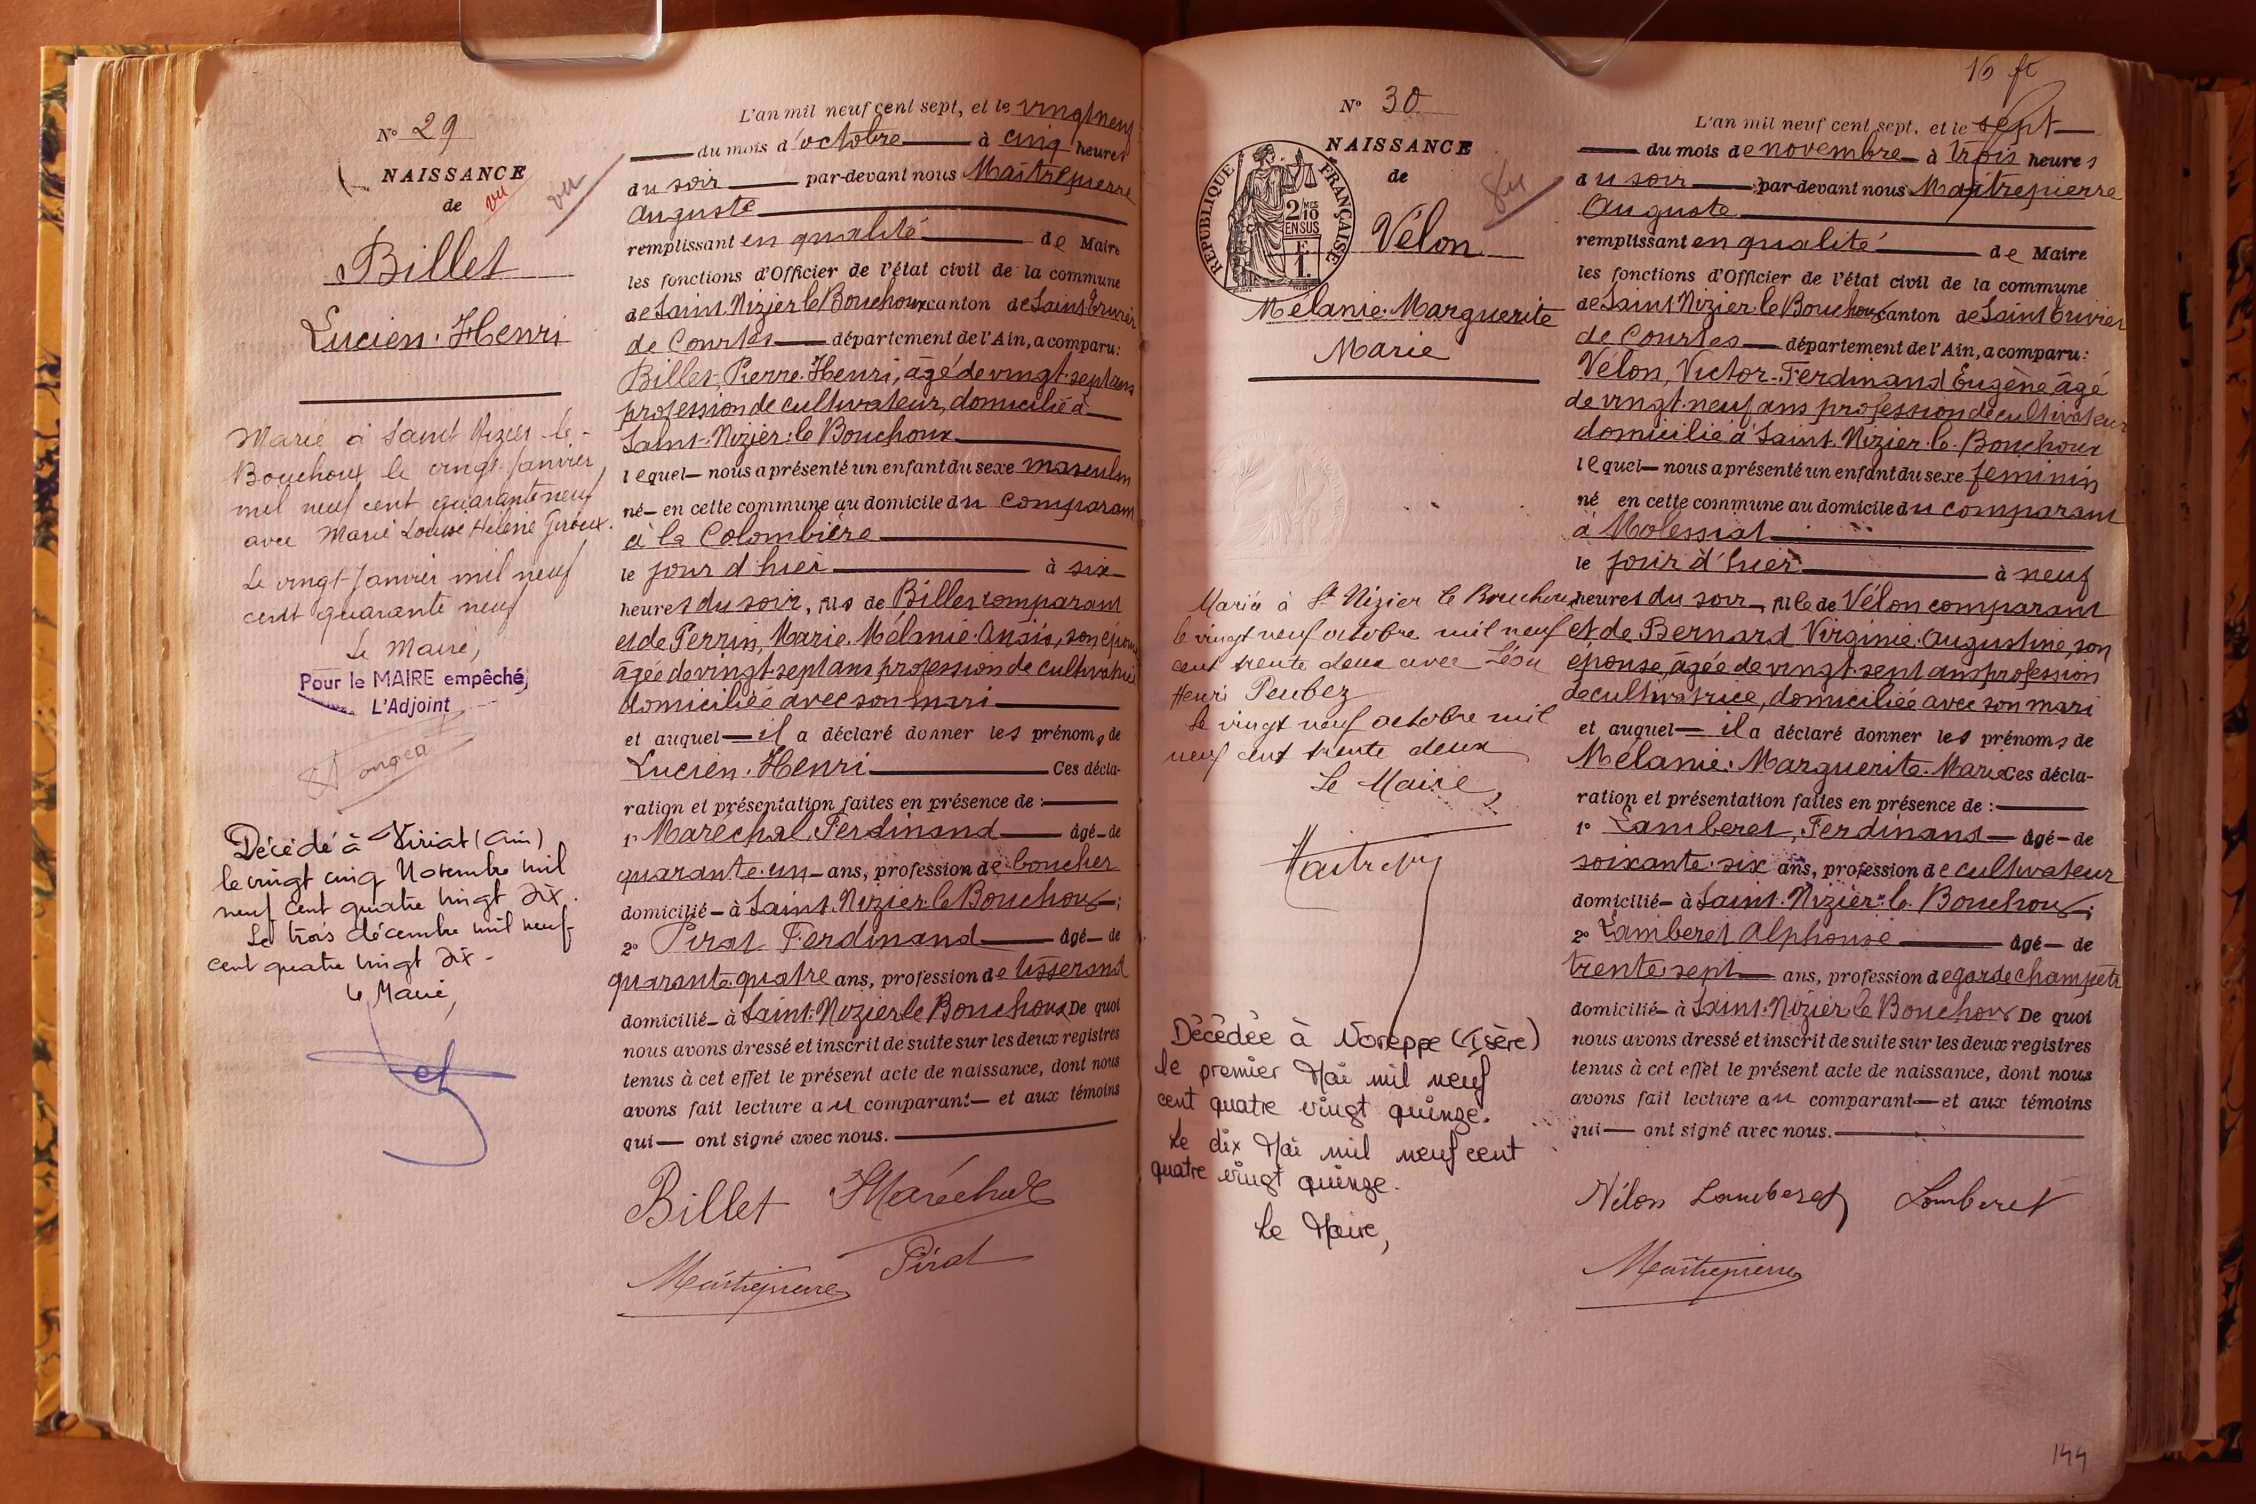 N° 29
NAISSANCE
de
vu
vu
Billet
Lucien. Henri
Marié à Saint Nizier-le-
Bouchoux le vingt Janvier
mil neuf cent quarante neuf
avec Marie Louise Hélène
Le vingt Janvier mil neuf
cent quarante neuf
Le Maire,
Pour le MAIRE empêché,
L'Adjoint
Décédé à Viriat (Ain)
le vingt cinq Novembre mil
neuf cent quatre vingt dix.
Le trois décembre mil neuf
cent quatre vingt dix-
Le Maire,
L'an mil neuf cent sept, et le vingt neuf
du mois d'octobre à cinq heures
du soir par-devant nous Maîtrepierre
Auguste
remplissant en qualité de Maire
les fonctions d'Officier de l'état civil de la commune
de Saint.Nizier le Bouchoux canton de Saint Trivier
de Courtes département de l'Ain, a comparu:
Billet, Pierre.Henri, âgé de vingt.sept ans
profession de cultivateur, domicilié à
Saint.Nizier.le Bouchoux
lequel nous a présenté un enfant du sexe masculin
né en cette commune au domicile du comparant
à la Colombière
le jour d'hier à six
heures du soir, fils de Billet comparant
et de Perrin, Marie.Mélanie. son épouse
âgée de vingt.sept ans profession de cultivatrice
domiciliée avec son mari
et auquel il a déclaré donner les prénoms de
Lucien.Henri Ces décla-
ration et présentation faites en présence de :
1° Maréchal, Ferdinand âgé de
quarante.un ans, profession de boucher
domicilié à Saint.Nizier.le Bouchoux;
2° Pirat Ferdinand âgé de
quarante.quatre ans, profession de tisserand
domicilié à Saint.Nizier le Bouchoux De quoi
nous avons dressé et inscrit de suite sur les deux registres
tenus à cet effet le présent acte de naissance, dont nous
avons fait lecture au comparant et aux témoins
qui ont signé avec nous.
Billet Maréchal
Maitrepierre Pirat
16 ft
N° 30
NAISSANCE
de
vu
RÉPUBLIQUE FRANÇAISE
2/10 MES
EN SUS
F.
1.
Vélon
Mélanie.Marguerite
Marie
Mariée à St Nizier le Bouchoux
le vingt neuf octobre mil neuf
cent trente deux avec Léon
Henri Peubez
Le vingt neuf octobre mil
neuf cent trente deux
Le Maire,
Décédée à Voreppe (Isère)
le premier Mai mil neuf
cent quatre vingt quinze.
Le dix Mai mil neuf cent
quatre vingt quinze.
Le Maire,
L'an mil neuf cent sept, et le sept
du mois de novembre à trois heures
du soir par-devant nous Maîtrepierre
Auguste
remplissant en qualité de Maire
les fonctions d'Officier de l'état civil de la commune
de Saint Nizier le Bouchoux canton de Saint Trivier
de Courtes département de l'Ain, a comparu:
Vélon, Victor.Ferdinand Eugène âgé
de vingt.neuf ans profession de cultivateur
domicilié à Saint.Nizier.le.Bouchoux
lequel nous a présenté un enfant du sexe féminin
né en cette commune au domicile du comparant
à Molessiat
le jour d'hier à neuf
heures du soir, fille de Vélon comparant
et de Bernard Virginie.Augustine, son
épouse, âgée de vingt.sept ans profession
de cultivatrice, domiciliée avec son mari
et auquel il a déclaré donner les prénoms de
Mélanie.Marguerite.Marie Ces décla-
ration et présentation faites en présence de :
1° Lamberet, Ferdinand âgé de
soixante.six ans, profession de cultivateur
domicilié à Saint.Nizier.le.Bouchoux;
2° Lamberet Alphonse âgé de
trente.sept ans, profession de garde champêtre
domicilié à Saint.Nizier le Bouchoux De quoi
nous avons dressé et inscrit de suite sur les deux registres
tenus à cet effet le présent acte de naissance, dont nous
avons fait lecture au comparant et aux témoins
qui ont signé avec nous.
Vélon Lamberet Lamberet
Maitrepierre
144